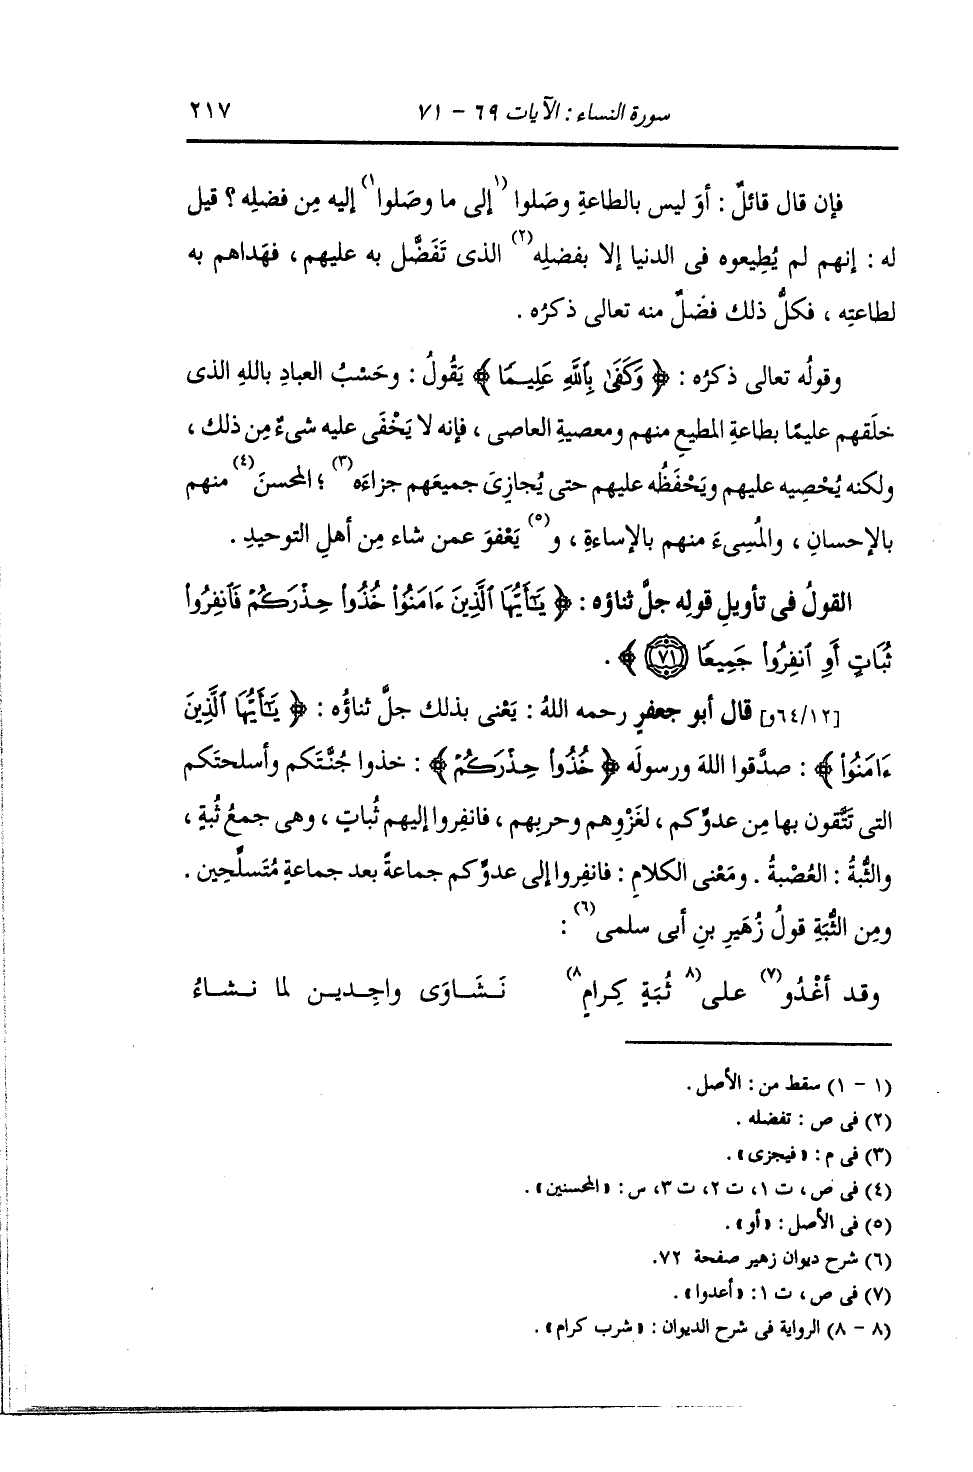 سورة النساء : الآيات ٦٩ - ٧١ ٢١٧
فإن قال قائلٌ : أوَ ليس بالطاعةِ وصَلوا (١) إلى ما وصَلوا (١) إليه مِن فضلِه ؟ قيل
له : إنهم لم يُطِيعوه فى الدنيا إلا بفضلِه (٢) الذى تَفَضَّل به عليهم ، فهَداهم به
لطاعتِه ، فكلُّ ذلك فضلٌ منه تعالى ذكرُه .
وقولُه تعالى ذكرُه : ﴿ وَكَفَىٰ بِٱللَّهِ عَلِيمًا ﴾ يَقُولُ : وحَسْبُ العبادِ باللهِ الذى
خلَقهم عليمًا بطاعةِ المطيعِ منهم ومعصيةِ العاصى ، فإنه لا يَخْفَى عليه شىءٌ مِن ذلك ،
ولكنه يُحْصِيه عليهم ويَحْفَظُه عليهم حتى يُجازِىَ جميعَهم جزاءَه (٣) ؛ المحسنَ (٤) منهم
بالإحسانِ ، والمُسِىءَ منهم بالإساءةِ ، و (٥) يَعْفوَ عمن شاء مِن أهلِ التوحيدِ .
القولُ فى تأويلِ قولِه جلَّ ثناؤه : ﴿ يَٰٓأَيُّهَا ٱلَّذِينَ ءَامَنُوا۟ خُذُوا۟ حِذْرَكُمْ فَٱنفِرُوا۟
ثُبَاتٍ أَوِ ٱنفِرُوا۟ جَمِيعًا (٧١) ﴾ .
[٦٤/١٢و] قال أبو جعفرٍ رحمه اللهُ : يَعْنى بذلك جلَّ ثناؤُه : ﴿ يَٰٓأَيُّهَا ٱلَّذِينَ
ءَامَنُوا۟ ﴾ : صدَّقوا اللهَ ورسولَه ﴿ خُذُوا۟ حِذْرَكُمْ ﴾ : خذوا جُنَّتَكم وأسلحتَكم
التى تَتَّقون بها مِن عدوِّكم ، لغَزْوِهم وحربِهم ، فانفِروا إليهم ثُباتٍ ، وهى جمعُ ثُبةٍ ،
والثُّبةُ : العُصْبةُ . ومَعْنى الكلامِ : فانفِروا إلى عدوِّكم جماعةً بعد جماعةٍ مُتَسلِّحِين .
ومِن الثُّبَةِ قولُ زُهَيرِ بنِ أبى سلمى (٦) :
وقد أَغْدُو (٧) على (٨) ثُبَةٍ كِرامٍ (٨) نَشَاوَى واجِدين لما نشاءُ
(١ - ١) سقط من : الأصل .
(٢) فى ص : تفضله .
(٣) فى م : « فيجزى » .
(٤) فى ص ، ت ١، ت ٢، ت ٣، س : « المحسنين » .
(٥) فى الأصل : « أو » .
(٦) شرح ديوان زهير صفحة ٧٢.
(٧) فى ص ، ت ١: « أعدوا » .
(٨ - ٨) الرواية فى شرح الديوان : « شرب كرام » .